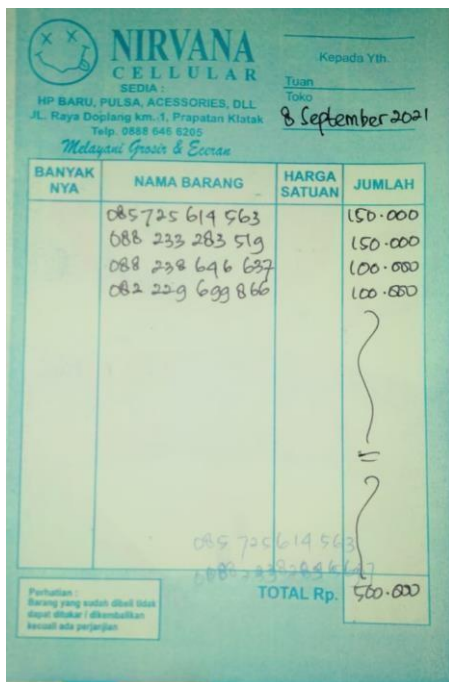 NIRVANA
CELLULAR
SEDIA :
HP BARU, PULSA, ACESSORIES, DLL
JL. Raya Doplang km. 1, Prapatan Klatak
Telp. 0888 646 6205
Melayani Grosir & Eceran
Kepada Yth.
Tuan
Toko
8 September 2021
BANYAK NYA NAMA BARANG HARGA SATUAN JUMLAH
085725 614 563 150.000
088 233 283 519 150.000
088 238 646 637 100.000
082 229 699 866 100.000
=
085 725614 563
TOTAL Rp. 500.000
Perhatian :
Barang yang sudah dibeli tidak
dapat ditukar / dikembalikan
kecuali ada perjanjian